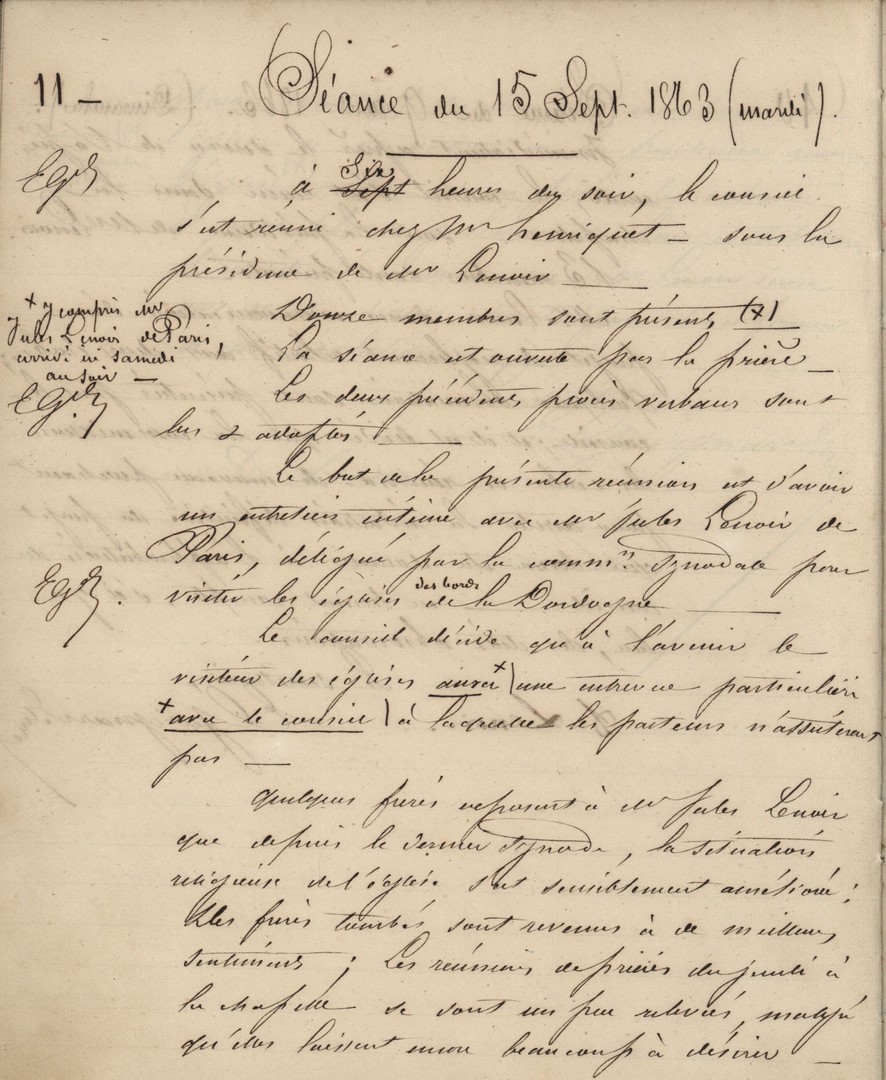 11 _ Séance du 15 Sept. 1863 (mardi).
à Six Sept heures du soir, le conseil
s'est réuni chez Mr henriquet _ sous la
présidence de Mr Lenoir
Douze membres sont présents (x)
x y compris Mr
Jules Lenoir de Paris,
arrivé ici samedi
au soir _
La séance est ouverte par la prière _
Les deux précédents procès verbaux sont
lus & adoptés
Le but de la présente réunion est d'avoir
un entretien intime avec Mr Jules Lenoir de
Paris, délégué par la commn. synodale pour
visiter les églises des bords de la Dordogne
Le conseil décide qu'à l'avenir le
visiteur des églises aura x une entrevue particulière
x avec le conseil à laquelle les pasteurs n'assisteront
pas _
quelques frères exposent à Mr Jules Lenoir
que depuis le dernier synode, la situation
religieuse de l'église s'est sensiblement améliorée ;
Des frères tombés sont revenus à de meilleurs
sentiments ; Les réunions de prières du jeudi à
la chapelle se sont un peu relevées, malgré
qu'elles laissent encore beaucoup à désirer _